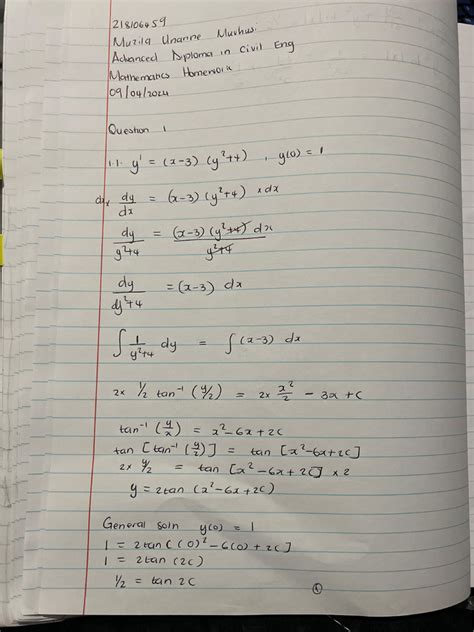 218106459
Muzila Unanne Muvhusi
Advanced Diploma in Civil Eng
Mathematics Homework
09/04/2024
Question 1
1.1. y' = (x-3) (y²+4) , y(0) = 1
dx × dy/dx = (x-3) (y²+4) × dx
dy/y²+4 = (x-3) (y²+4) dx/y²+4
dy/dy²+4 = (x-3) dx
∫ 1/y²+4 dy = ∫ (x-3) dx
2× 1/2 tan⁻¹ (y/2) = 2× x²/2 - 3x + C
tan⁻¹ (y/2) = x²-6x+2C
tan [tan⁻¹ (y/2)] = tan [x²-6x+2C]
2× y/2 = tan [x²-6x+2C] × 2
y = 2tan (x²-6x+2C)
General soln y(0) = 1
1 = 2tan [(0)² -6(0) + 2C]
1 = 2tan (2C)
1/2 = tan 2C
①